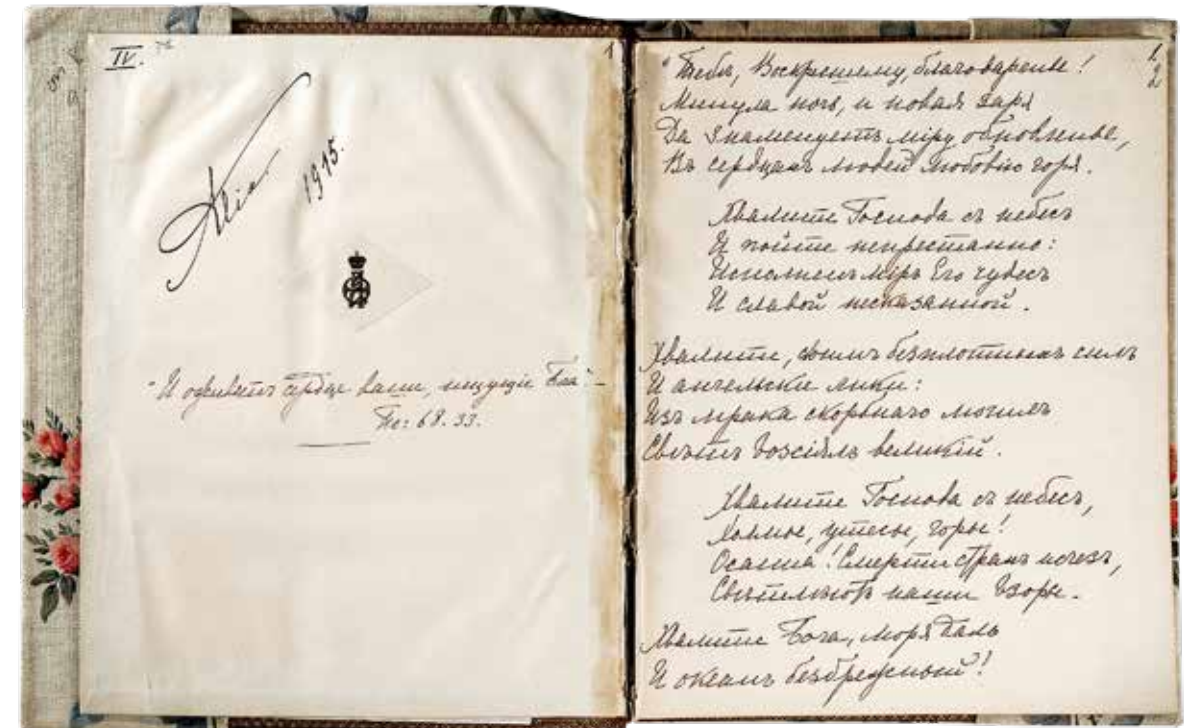 IV.
1
Alix.
1915.
"И оживетъ сердце ваше, ищущіе Бга". –
Пс: 68. 33.
1
2
"Тебѣ, Воскресшему, благодаренье!
Минула ночь, и новая заря
Да знаменуетъ міру обновленье,
Въ сердцахъ людей любовію горя.
Хвалите Господа съ небесъ
И пойте непрестанно:
Исполненъ міръ Его чудесъ
И славой несказанной.
Хвалите, сонмъ безплотныхъ силъ
И ангельскіе лики:
Изъ мрака скорбнаго могилъ
Свѣтъ возсіялъ великій.
Хвалите Господа съ небесъ,
Холмы, утесы, горы!
Осанна! Смерти страхъ исчезъ,
Свѣтлѣютъ наши взоры.
Хвалите Бога, моря даль
И океанъ безбрежный!